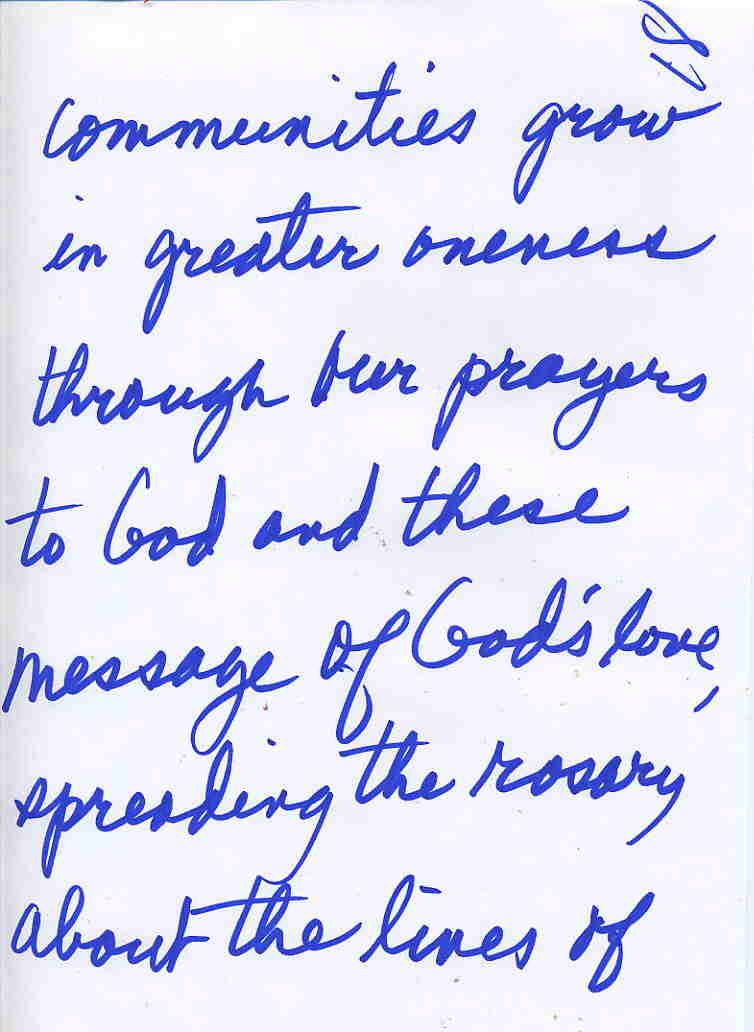 communities grow
in greater oneness
through our prayers
to God and these
message of God's love,
spreading the rosary
about the lives of